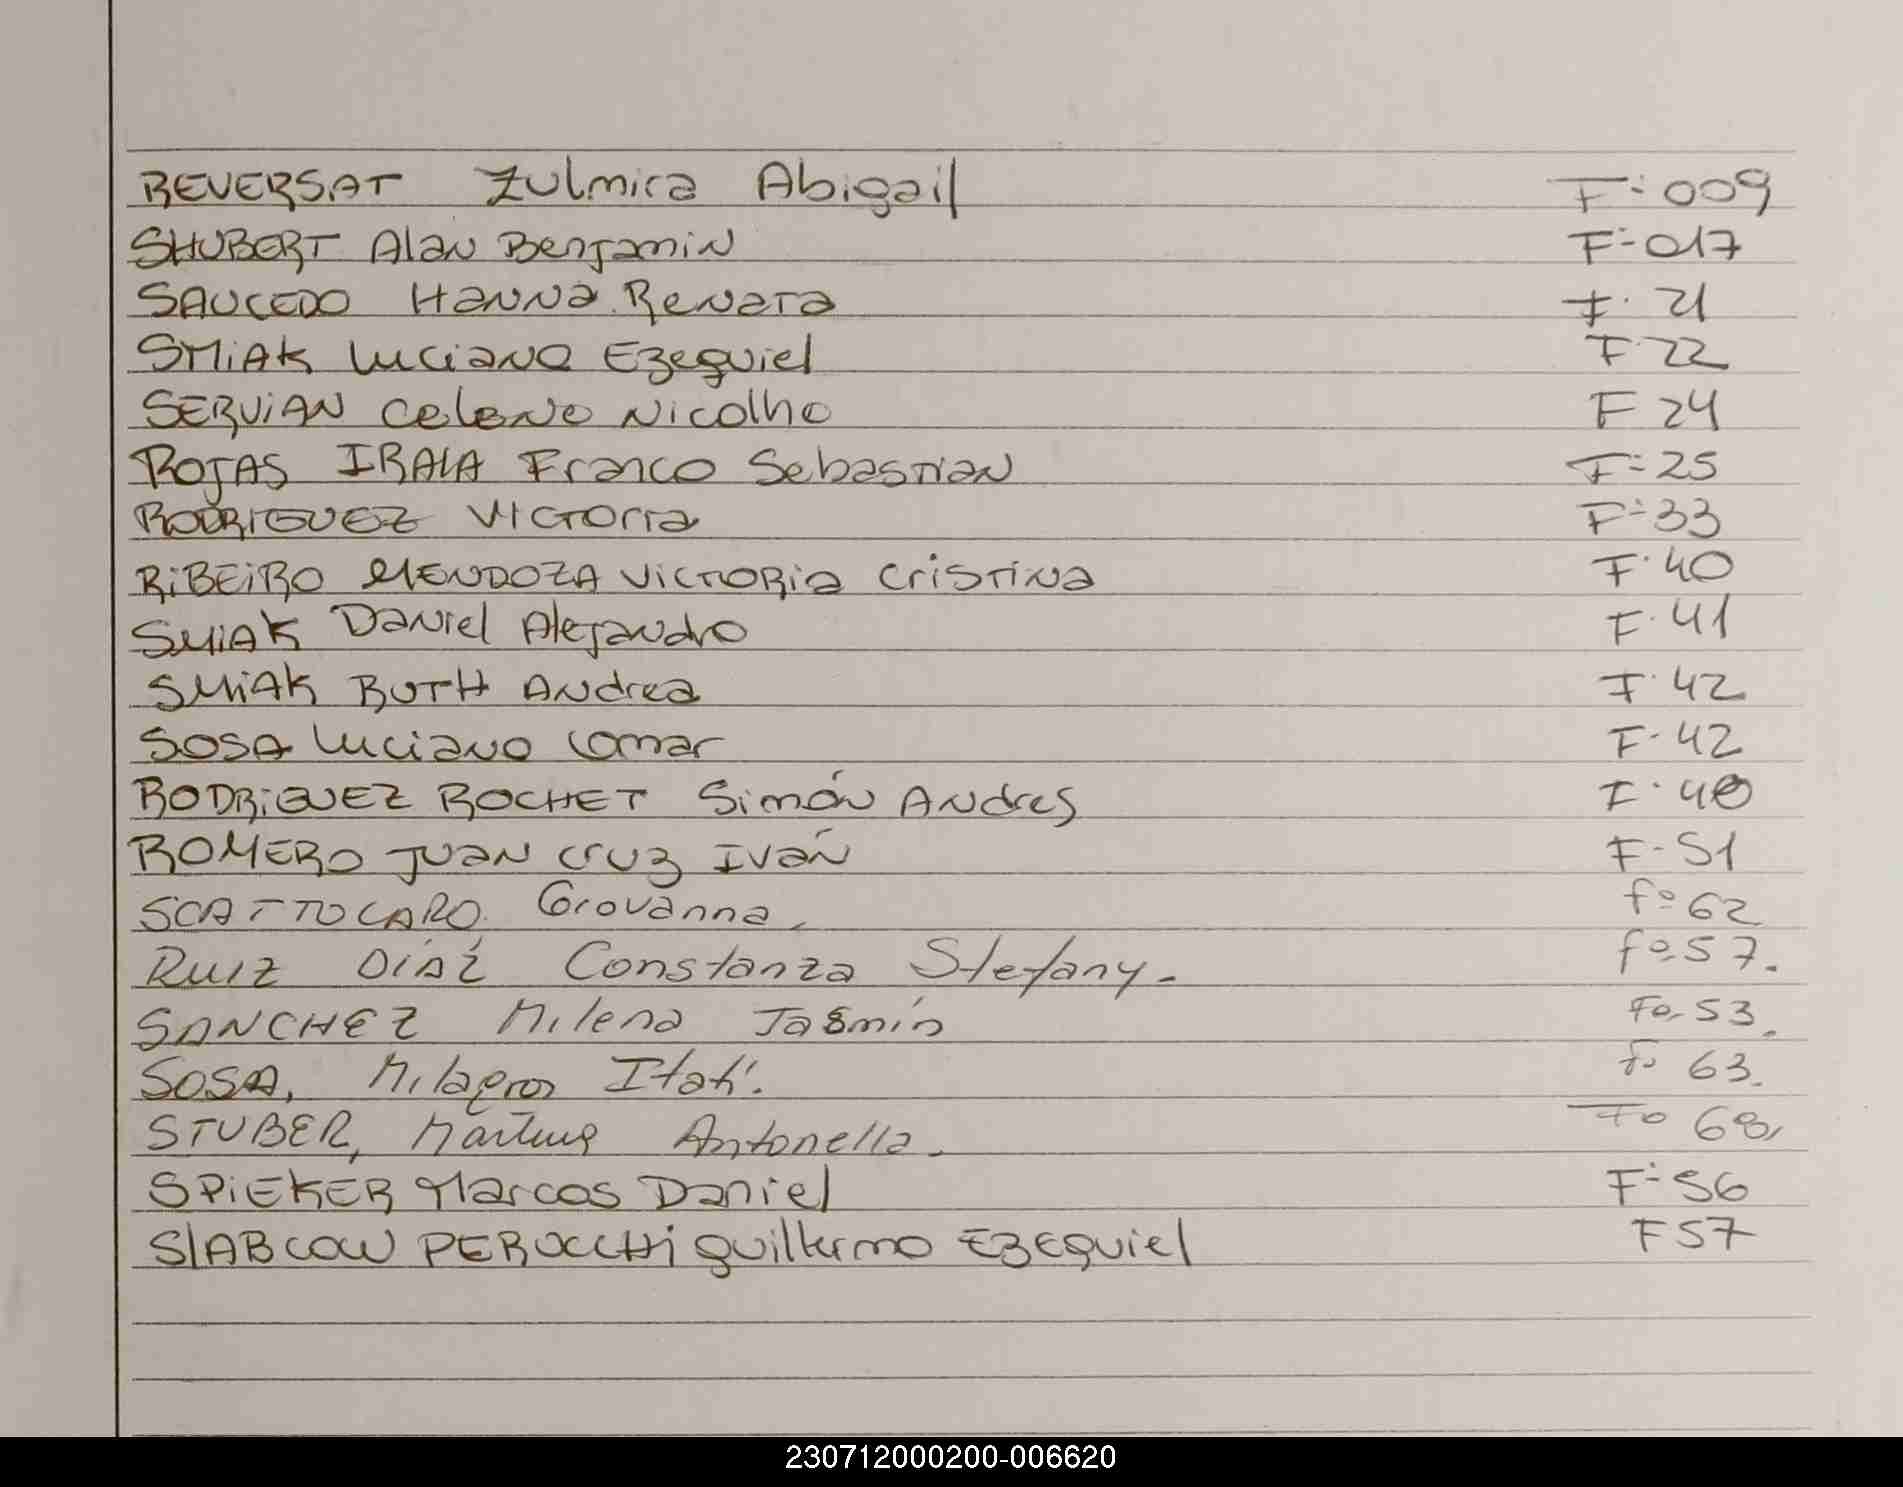 REVERSAT Zulmira Abigail F- 009
SHUBERT Alan Benjamin F- 017
SAUCEDO Hanna Renata F. 21
SMiAK Luciano Ezequiel F 22
SERViAN Celene Nicolho F 24
ROJAS IRALA Franco Sebastian F- 25
RODRIGUEZ Victoria F- 33
RiBEiRO MENDOZA Victoria Cristina F. 40
SMIAK Daniel Alejandro F. 41
SMiAK RUTH Andrea F. 42
SOSA Luciano Comar F- 42
RODRiGUEZ ROCHET Simón Andres F. 40
ROMERO Juan Cruz Iván F- 51
SCATTOLARO Giovanna. fº 62
RUIZ DÍAZ Constanza Stefany.- fº 57.
SANCHEZ Milena Jasmín Fo. 53.
SOSA, Milagros Itatí. fo 63.
STUBER, Martina Antonella. Fo 68.
SPiEKER Marcos Daniel F- 56
SLABCOW PEROCCHi guillermo EZEQUiel F 57
230712000200-006620